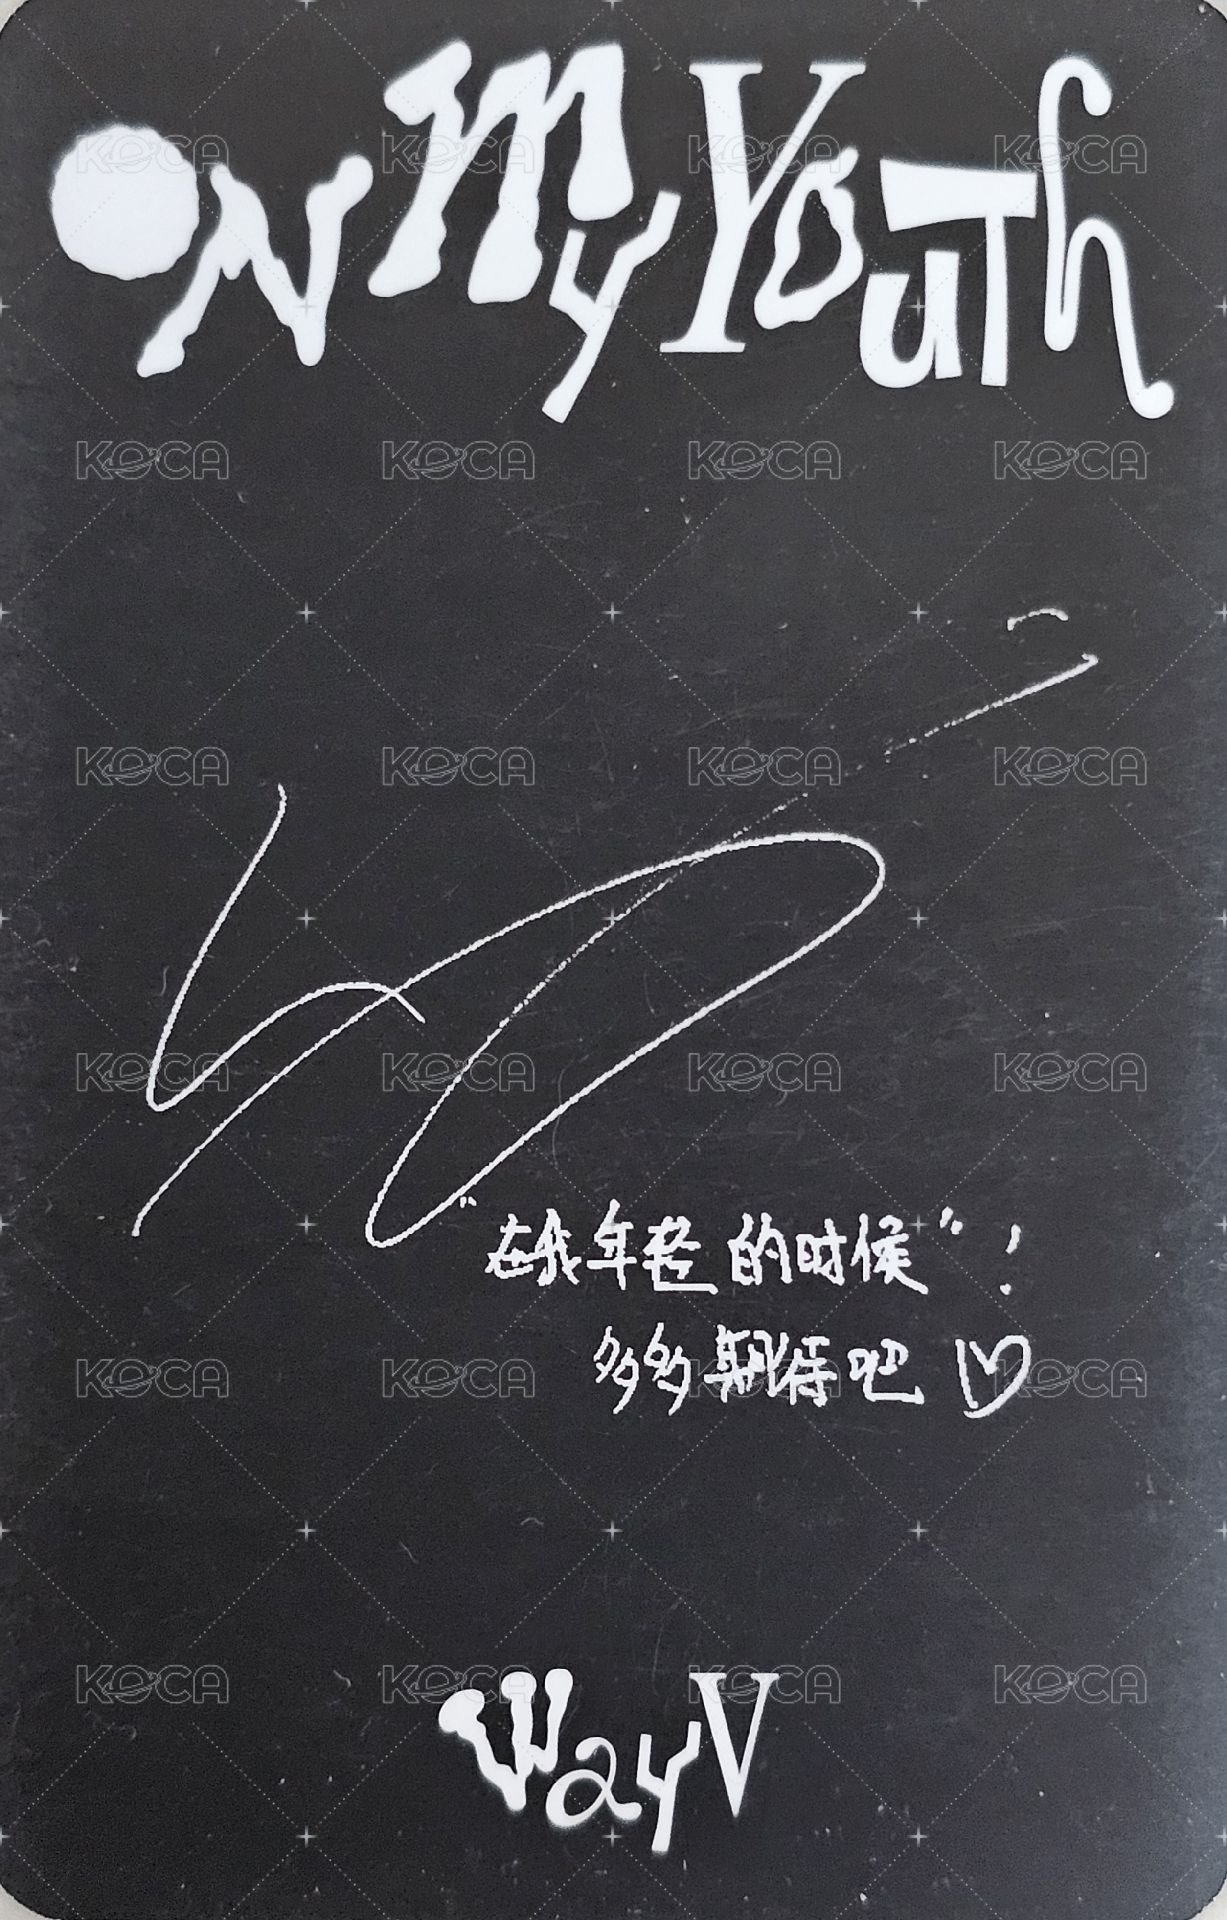 ON My Youth
"在我年轻的时候"!
多多期待吧 ♡
WayV
KOCA